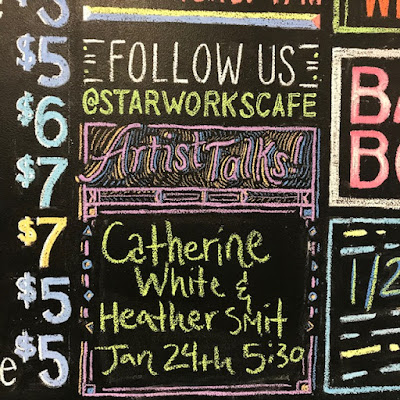 $5
$6
$7
$7
$5
$5
FOLLOW US
@STARWORKSCAFE
Artist Talks!
Catherine
White &
Heather Smit
Jan 24th 5:30
1/2